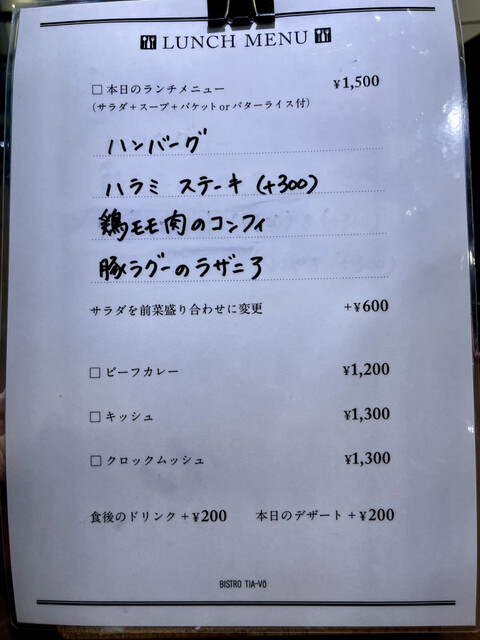 LUNCH MENU
□ 本日のランチメニュー ¥1,500
(サラダ+スープ+バケットorバターライス付)
ハンバーグ
ハラミ ステーキ (+300)
鶏モモ肉のコンフィ
豚ラグーのラザニア
サラダを前菜盛り合わせに変更 +¥600
□ ビーフカレー ¥1,200
□ キッシュ ¥1,300
□ クロックムッシュ ¥1,300
食後のドリンク +¥200 本日のデザート +¥200
BISTRO TIA-VO